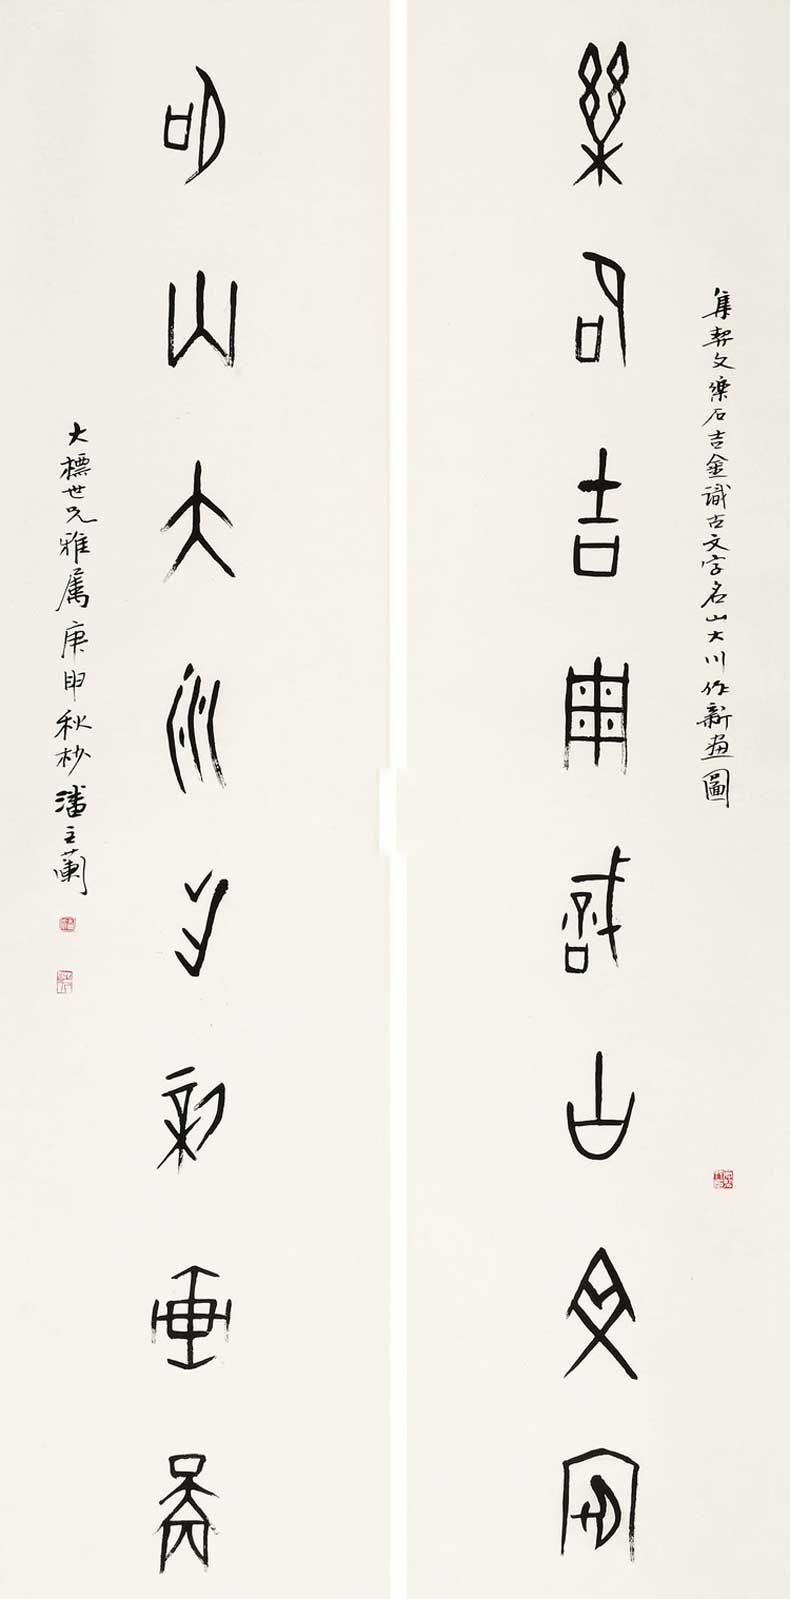 集契文樂石吉金識古文字名山大川作新畫圖
樂石吉金識古文字
名山大川作新畫圖
大標世兄雅属庚申秋杪潘主蘭